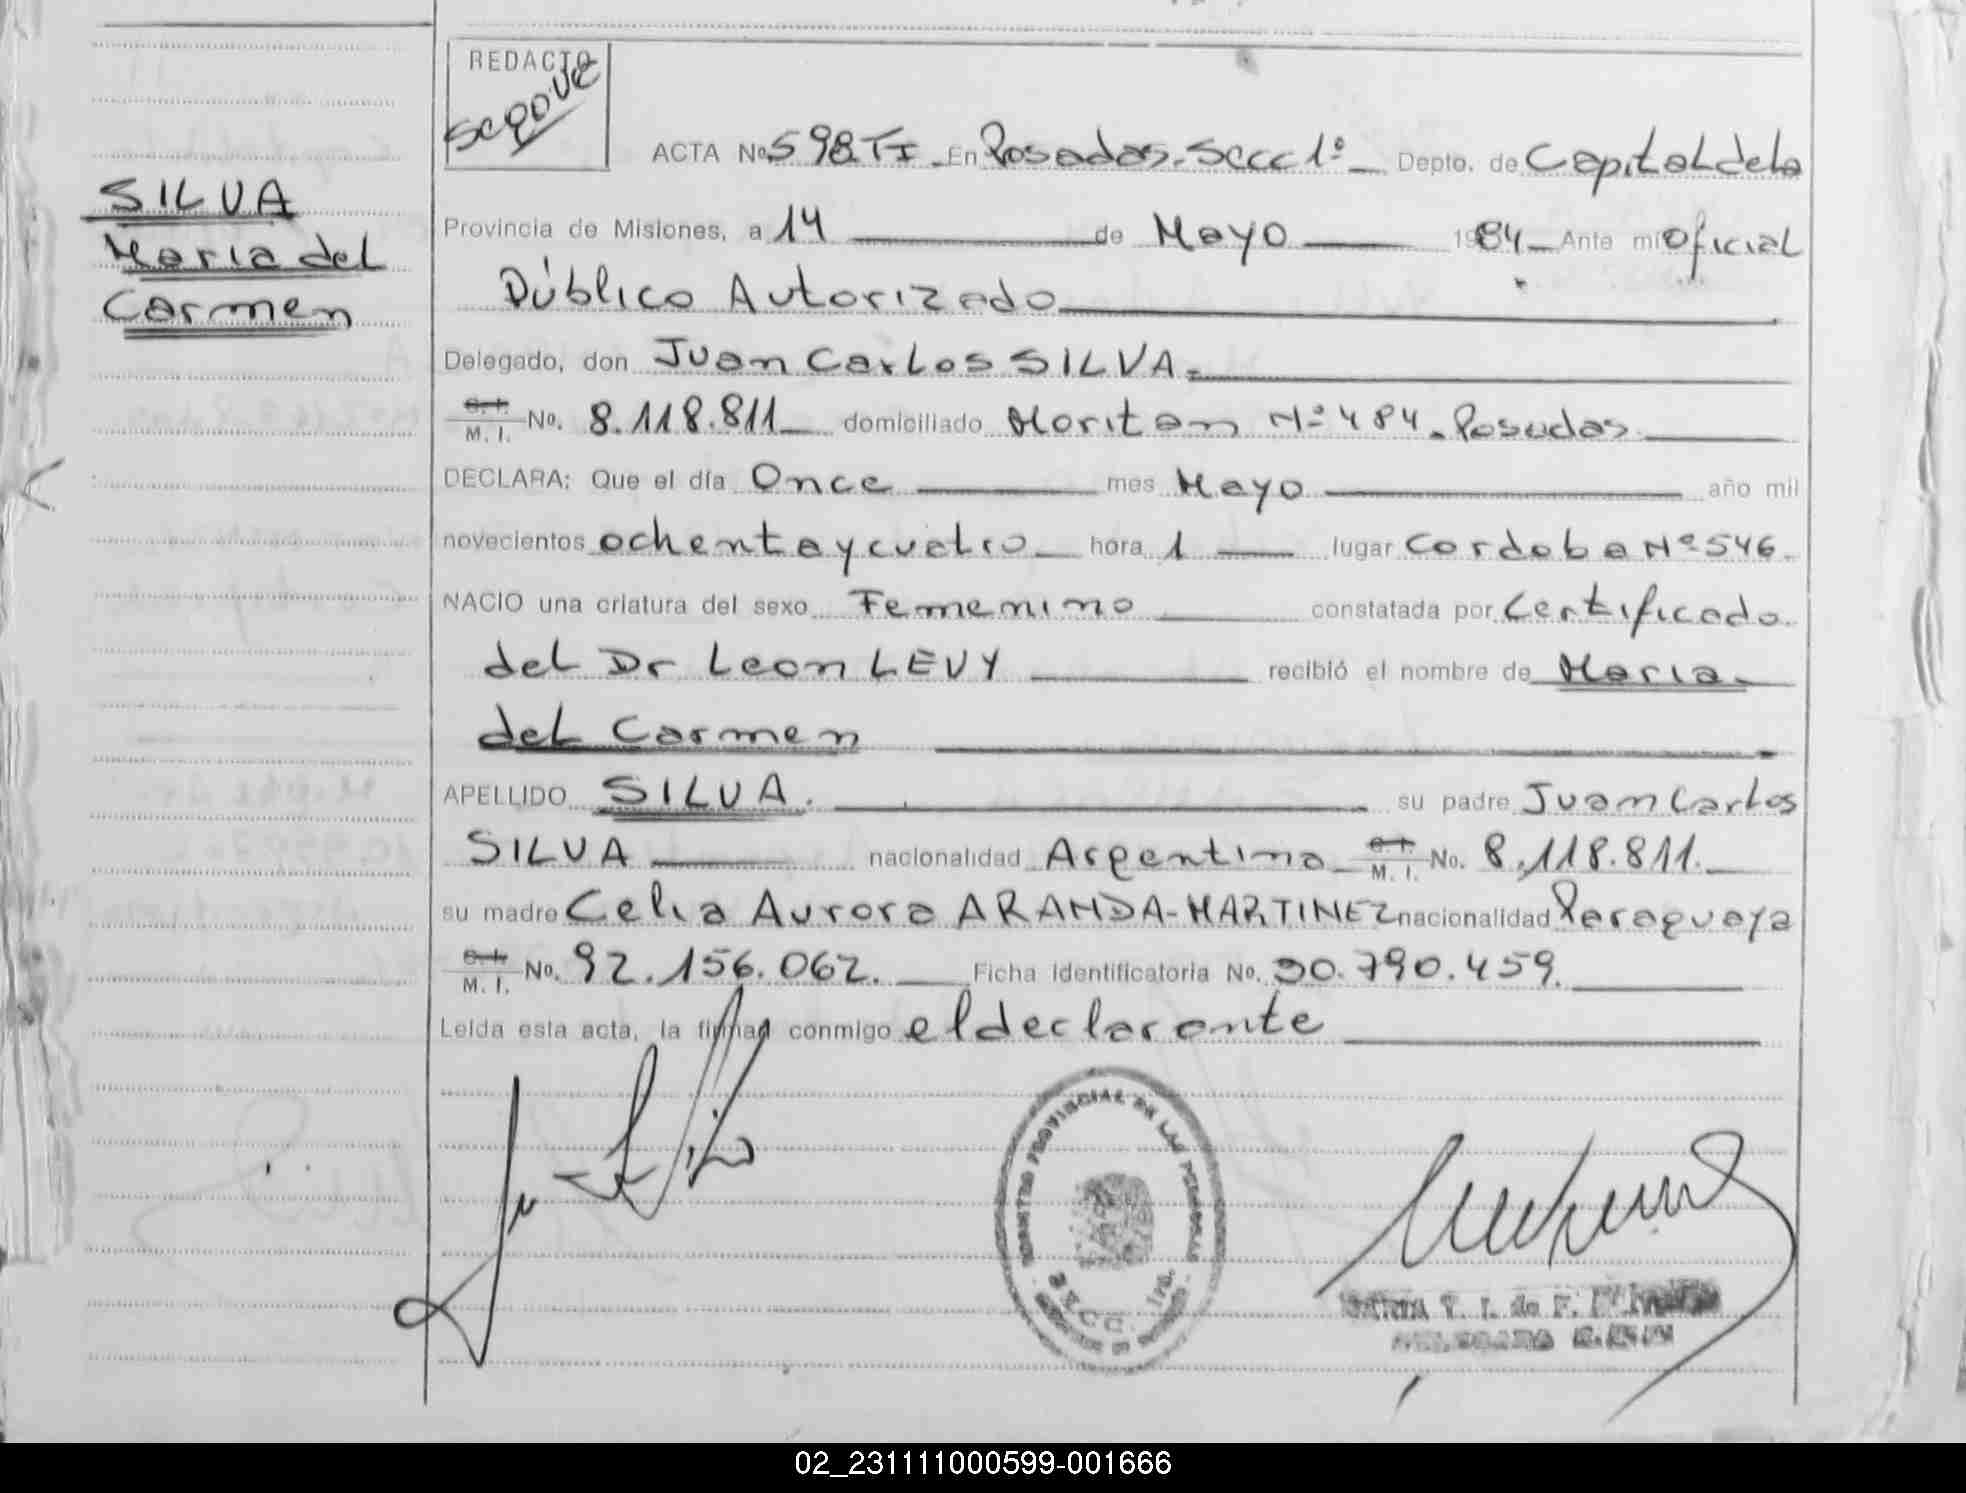 REDACTO
ACTA No 598 TI En Posadas. Secc 1º Depto. de Capital de la
SILVA
Maria del
Carmen
Provincia de Misiones, a 14 de Mayo 1984 Ante mi oficial
Público Autorizado
Delegado, don Juan Carlos SILVA.
C. I.
M. I. No. 8.118.811 domiciliado Moritan Nº 484. Posadas.
DECLARA: Que el día Once mes Mayo año mil
novecientos ochenta y cuatro hora 1 lugar Cordoba Nº 546.
NACIO una criatura del sexo Femenino constatada por Certificado
del Dr Leon LEVY recibió el nombre de Maria
del Carmen
APELLIDO SILVA. su padre Juan Carlos
SILVA nacionalidad Argentina C. I. M. I. No. 8.118.811.
su madre Celia Aurora ARANDA-MARTINEZ nacionalidad Paraguaya
C. I.
M. I. No. 92.156.062. Ficha identificatoria No. 30.790.459.
Leída esta acta, la firman conmigo el declarante
REGISTRO PROVINCIAL DE LAS PERSONAS
02_231111000599-001666